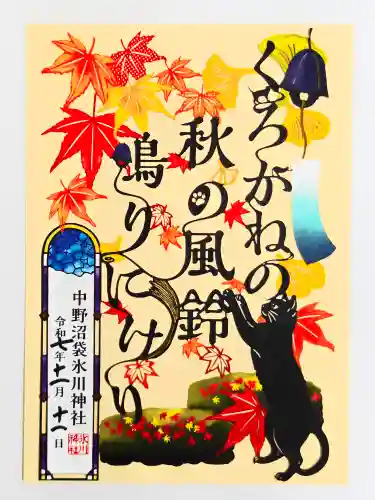 くろがねの
秋の風鈴
鳴りにけり
中野沼袋氷川神社
令和七年十一月十一日
氷川
神社